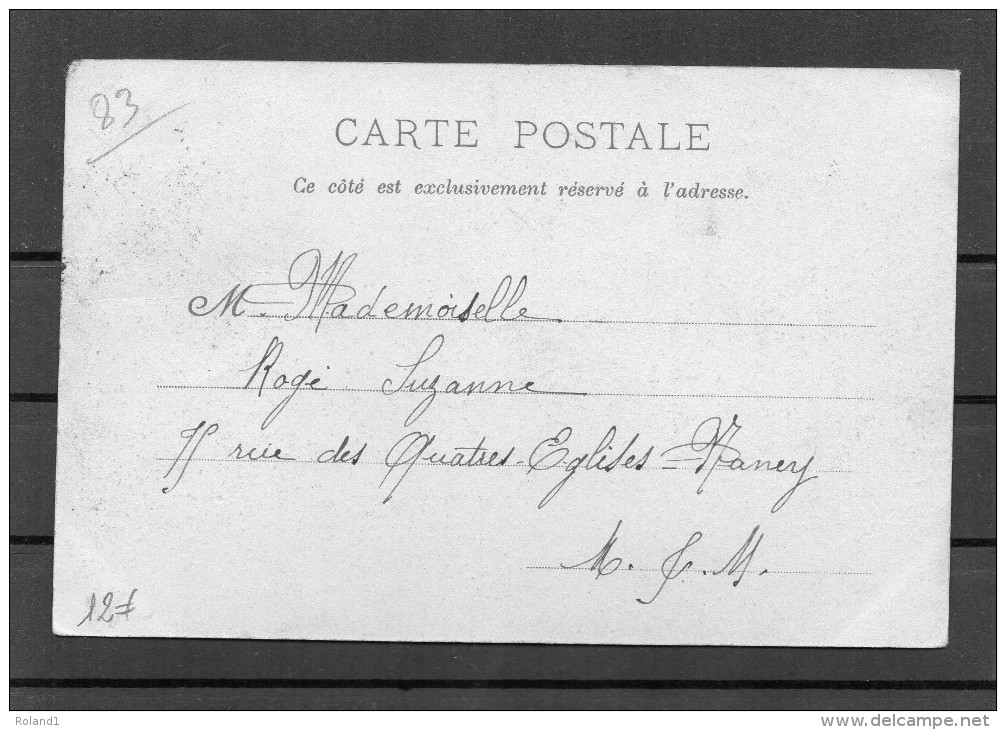 83
CARTE POSTALE
Ce côté est exclusivement réservé à l'adresse.
M. Mademoiselle
Rogé Suzanne
rue des Quatres-Eglises = Nancy
M. &. M.
12f
Roland1
www.delcampe.net